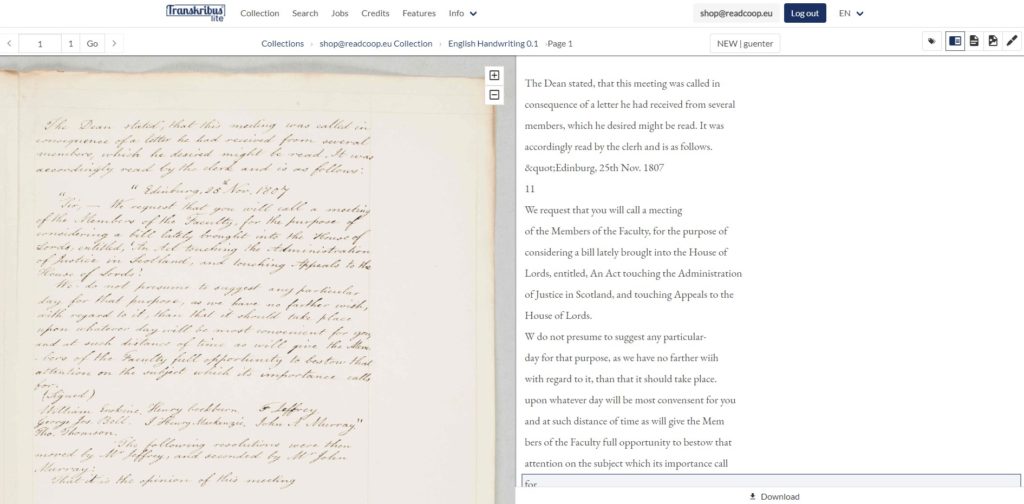 Transkribus lite
Collection Search Jobs Credits Features Info
shop@readcoop.eu Log out EN
1 1 Go
Collections › shop@readcoop.eu Collection › English Handwriting 0.1 › Page 1
NEW | guenter
The Dean stated, that this meeting was called in
consequence of a letter he had received from several
members, which he desired might be read. It was
accordingly read by the clerk and is as follows:
"Edinburg, 25th Nov. 1807
"Sir, — We request that you will call a meeting
of the Members of the Faculty, for the purpose of
considering a bill lately brought into the House of
Lords, entitled, 'An Act touching the Administration
of Justice in Scotland, and touching Appeals to the
House of Lords'.
We do not presume to suggest any particular
day for that purpose, as we have no farther wish,
with regard to it, than that it should take place
upon whatever day will be most convenient for you
and at such distance of time as will give the Mem-
bers of the Faculty full opportunity to bestow that
attention on the subject which its importance calls
for.
(Signed)
William Erskine, Henry Cockburn F Jeffrey
George Jos. Bell. J Henry Mackenzie, John A Murray"
Tho. Thomson.
The following resolutions were then
moved by Mr Jeffrey, and seconded by Mr John
Murray:
That it is the opinion of this meeting
The Dean stated, that this meeting was called in
consequence of a letter he had received from several
members, which he desired might be read. It was
accordingly read by the clerh and is as follows.
&quot;Edinburg, 25th Nov. 1807
11
We request that you will call a mecting
of the Members of the Faculty, for the purpose of
considering a bill lately brought into the House of
Lords, entitled, An Act touching the Administration
of Justice in Scotland, and touching Appeals to the
House of Lords.
W do not presume to suggest any particular-
day for that purpose, as we have no farther wiih
with regard to it, than that it should take place.
upon whatever day will be most convensent for you
and at such distance of time as will give the Mem
bers of the Faculty full opportunity to bestow that
attention on the subject which its importance call
for
Download